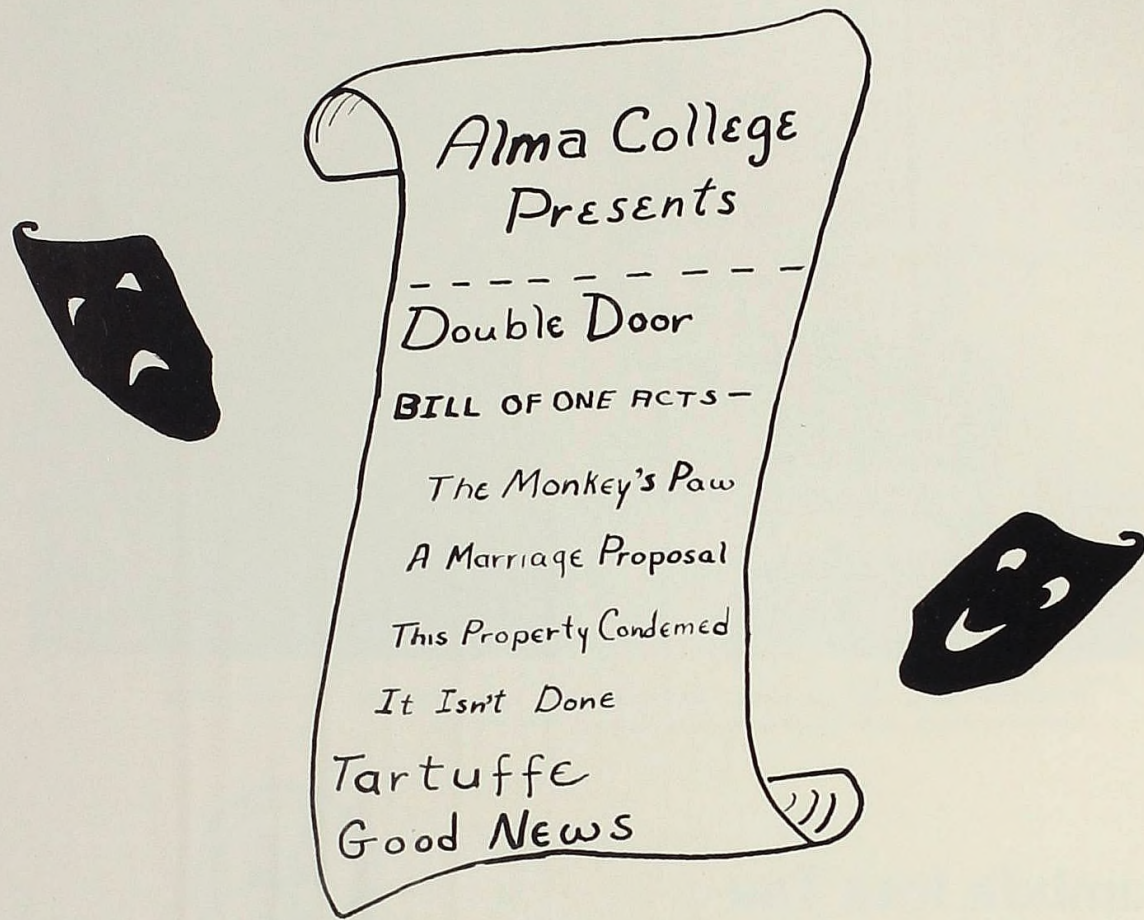 Alma College
Presents
Double Door
BILL OF ONE ACTS —
The Monkey's Paw
A Marriage Proposal
This Property Condemed
It Isn't Done
Tartuffe
Good News